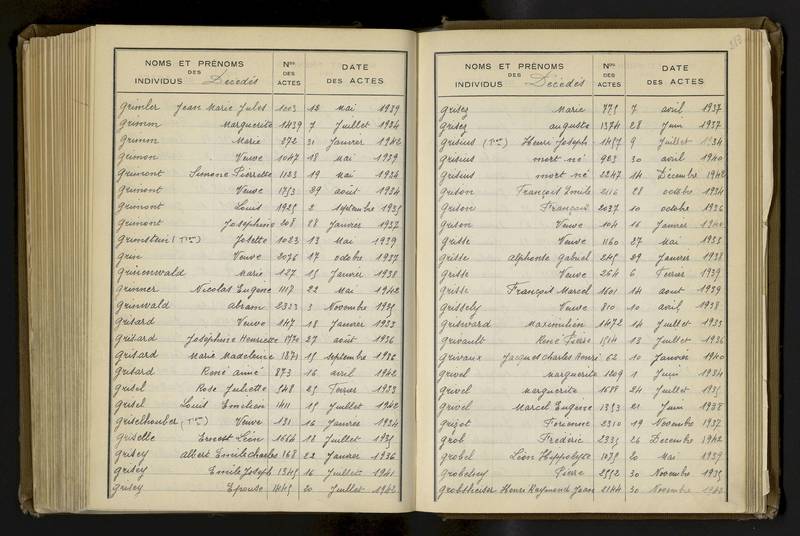 NOMS ET PRÉNOMS DES INDIVIDUS Décédés Nos DES ACTES DATE DES ACTES
Grimler Jean Marie Jules 1003 12 Mai 1939
Grimm Marguerite 1439 7 Juillet 1934
Grimm Marie 272 31 Janvier 1942
Grimon Veuve 1047 18 Mai 1939
Grimont Simone Pierrette 1123 19 Mai 1934
Grimont Veuve 1753 29 août 1934
Grimont Louis 1925 2 septembre 1935
Grimont Joséphine 208 28 Janvier 1937
Grimstein Josette 1023 13 Mai 1939
Grin Veuve 2076 17 octobre 1937
Grinenwald Marie 127 15 Janvier 1938
Grinner Nicolas Eugène 1117 22 Mai 1942
Grinwald Abram 2333 3 Novembre 1935
Grisard Veuve 147 18 Janvier 1933
Grisard Joséphine Henriette 1770 27 août 1936
Grisard Marie Madeleine 1871 15 septembre 1936
Grisard René aimé 873 16 avril 1942
Grisel Rose Juliette 548 25 Février 1933
Grisel Louis Emilien 1411 15 Juillet 1942
Griselhouber Veuve 131 16 Janvier 1934
Griselle Ernest Léon 1614 18 Juillet 1935
Grisey Albert Emile Charles 168 22 Janvier 1936
Grisey Emile Joseph 1345 16 Juillet 1941
Grisey Epouse 1445 20 Juillet 1942
213
NOMS ET PRÉNOMS DES INDIVIDUS Décédés Nos DES ACTES DATE DES ACTES
Grisez Marie 775 7 avril 1937
Grisez auguste 1374 28 Juin 1937
Grisius Henri Joseph 1457 9 Juillet 1934
Grisius mort né 923 30 avril 1940
Grisius mort né 2247 14 Décembre 1942
Grison François Emile 2116 28 octobre 1934
Grison François 2037 10 octobre 1936
Grison Veuve 104 16 Janvier 1940
Grisse Veuve 1160 27 Mai 1933
Grisse Alphonse Gabriel 245 29 Janvier 1938
Grisse Veuve 264 6 Février 1939
Grisse François Marcel 1601 14 août 1939
Grissely Veuve 810 10 avril 1938
Grisward Maximilien 1472 14 Juillet 1933
Grivault René Pierre 1514 13 Juillet 1936
Grivaux Jacques Charles Henri 62 10 Janvier 1940
Grivel Marguerite 1209 1 Juin 1934
Grivel Marguerite 1688 24 Juillet 1935
Grivel Marcel Eugène 1353 21 Juin 1938
Grizot 2310 19 Novembre 1937
Grob Frédéric 2335 26 Décembre 1942
Grobel Léon Hippolyte 1075 20 Mai 1939
Pierre 2552 30 Novembre 1935
Grobsheiser Henri Raymond Jean 2144 30 Novembre 1942